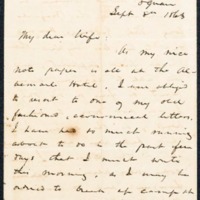 Sept 8th 1863
My dear Wife
As my nice
note paper is all at the
Hotel, I am obliged
to resort to one of my old
fashioned, economical letters.
I have had so much running
about to do in the past few
days, that I must write
this morning, as I may be
ordered to break up camp